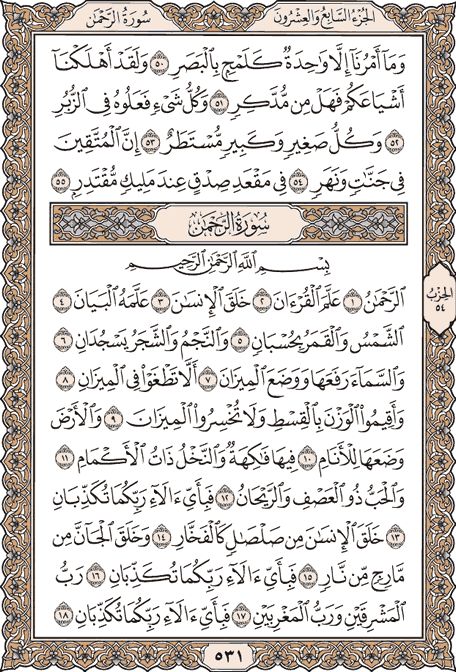 سُورَةُ الرَّحْمَٰن الجُزْءُ السَّابِعُ وَالعِشْرُونَ
وَمَآ أَمْرُنَآ إِلَّا وَٰحِدَةٌ كَلَمْحٍۭ بِٱلْبَصَرِ ٥٠ وَلَقَدْ أَهْلَكْنَآ
أَشْيَاعَكُمْ فَهَلْ مِن مُّدَّكِرٍ ٥١ وَكُلُّ شَىْءٍ فَعَلُوهُ فِى ٱلزُّبُرِ
٥٢ وَكُلُّ صَغِيرٍ وَكَبِيرٍ مُّسْتَطَرٌ ٥٣ إِنَّ ٱلْمُتَّقِينَ
فِى جَنَّٰتٍ وَنَهَرٍ ٥٤ فِى مَقْعَدِ صِدْقٍ عِندَ مَلِيكٍ مُّقْتَدِرٍۭ ٥٥
سُورَةُ الرَّحْمَٰن
بِسْمِ ٱللَّهِ ٱلرَّحْمَٰنِ ٱلرَّحِيمِ
ٱلرَّحْمَٰنُ ١ عَلَّمَ ٱلْقُرْءَانَ ٢ خَلَقَ ٱلْإِنسَٰنَ ٣ عَلَّمَهُ ٱلْبَيَانَ ٤
ٱلشَّمْسُ وَٱلْقَمَرُ بِحُسْبَانٍ ٥ وَٱلنَّجْمُ وَٱلشَّجَرُ يَسْجُدَانِ ٦
وَٱلسَّمَآءَ رَفَعَهَا وَوَضَعَ ٱلْمِيزَانَ ٧ أَلَّا تَطْغَوْا۟ فِى ٱلْمِيزَانِ ٨
وَأَقِيمُوا۟ ٱلْوَزْنَ بِٱلْقِسْطِ وَلَا تُخْسِرُوا۟ ٱلْمِيزَانَ ٩ وَٱلْأَرْضَ
وَضَعَهَا لِلْأَنَامِ ١٠ فِيهَا فَٰكِهَةٌ وَٱلنَّخْلُ ذَاتُ ٱلْأَكْمَامِ ١١
وَٱلْحَبُّ ذُو ٱلْعَصْفِ وَٱلرَّيْحَانُ ١٢ فَبِأَىِّ ءَالَآءِ رَبِّكُمَا تُكَذِّبَانِ
١٣ خَلَقَ ٱلْإِنسَٰنَ مِن صَلْصَٰلٍ كَٱلْفَخَّارِ ١٤ وَخَلَقَ ٱلْجَآنَّ مِن
مَّارِجٍ مِّن نَّارٍ ١٥ فَبِأَىِّ ءَالَآءِ رَبِّكُمَا تُكَذِّبَانِ ١٦ رَبُّ
ٱلْمَشْرِقَيْنِ وَرَبُّ ٱلْمَغْرِبَيْنِ ١٧ فَبِأَىِّ ءَالَآءِ رَبِّكُمَا تُكَذِّبَانِ ١٨
الحِزْبُ
٥٤
٥٣١